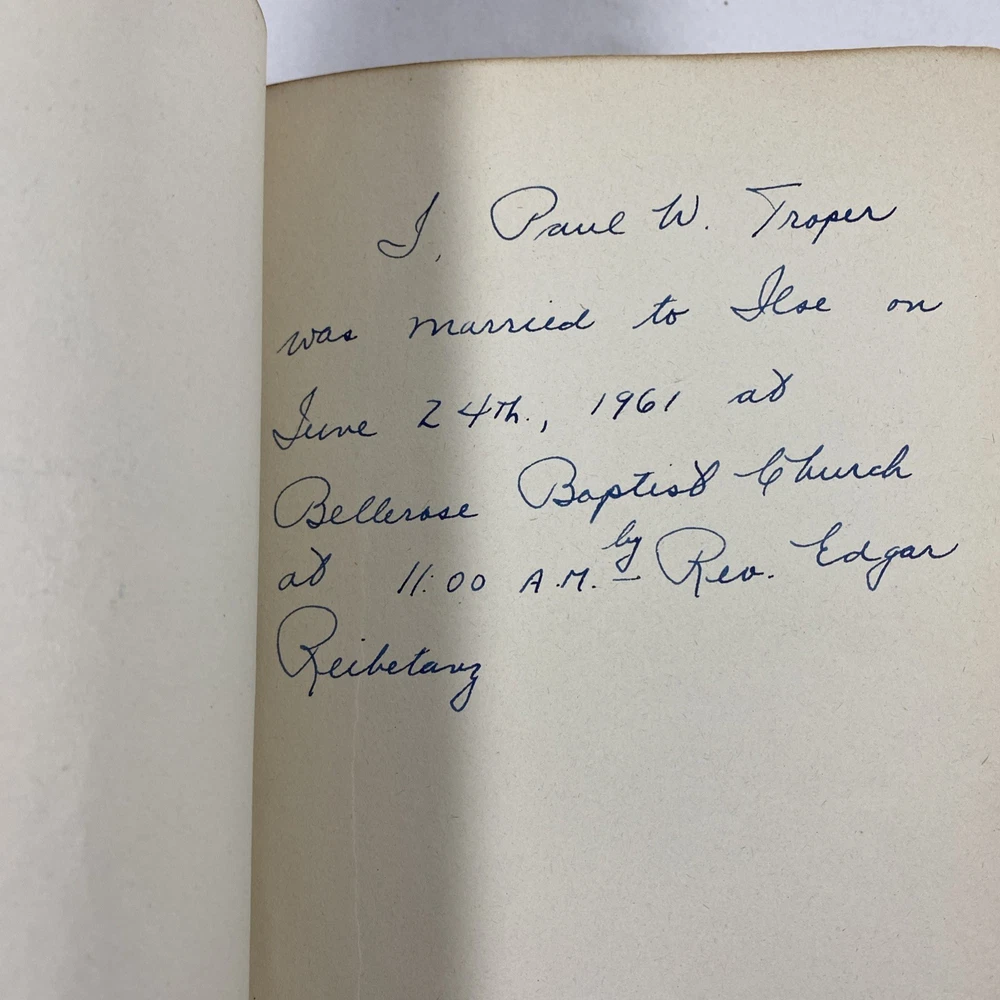 I, Paul W. Troper
was married to Ilse on
June 24th., 1961 at
Bellerose Baptist Church
at 11:00 A.M. by Rev. Edgar
Reibetanz